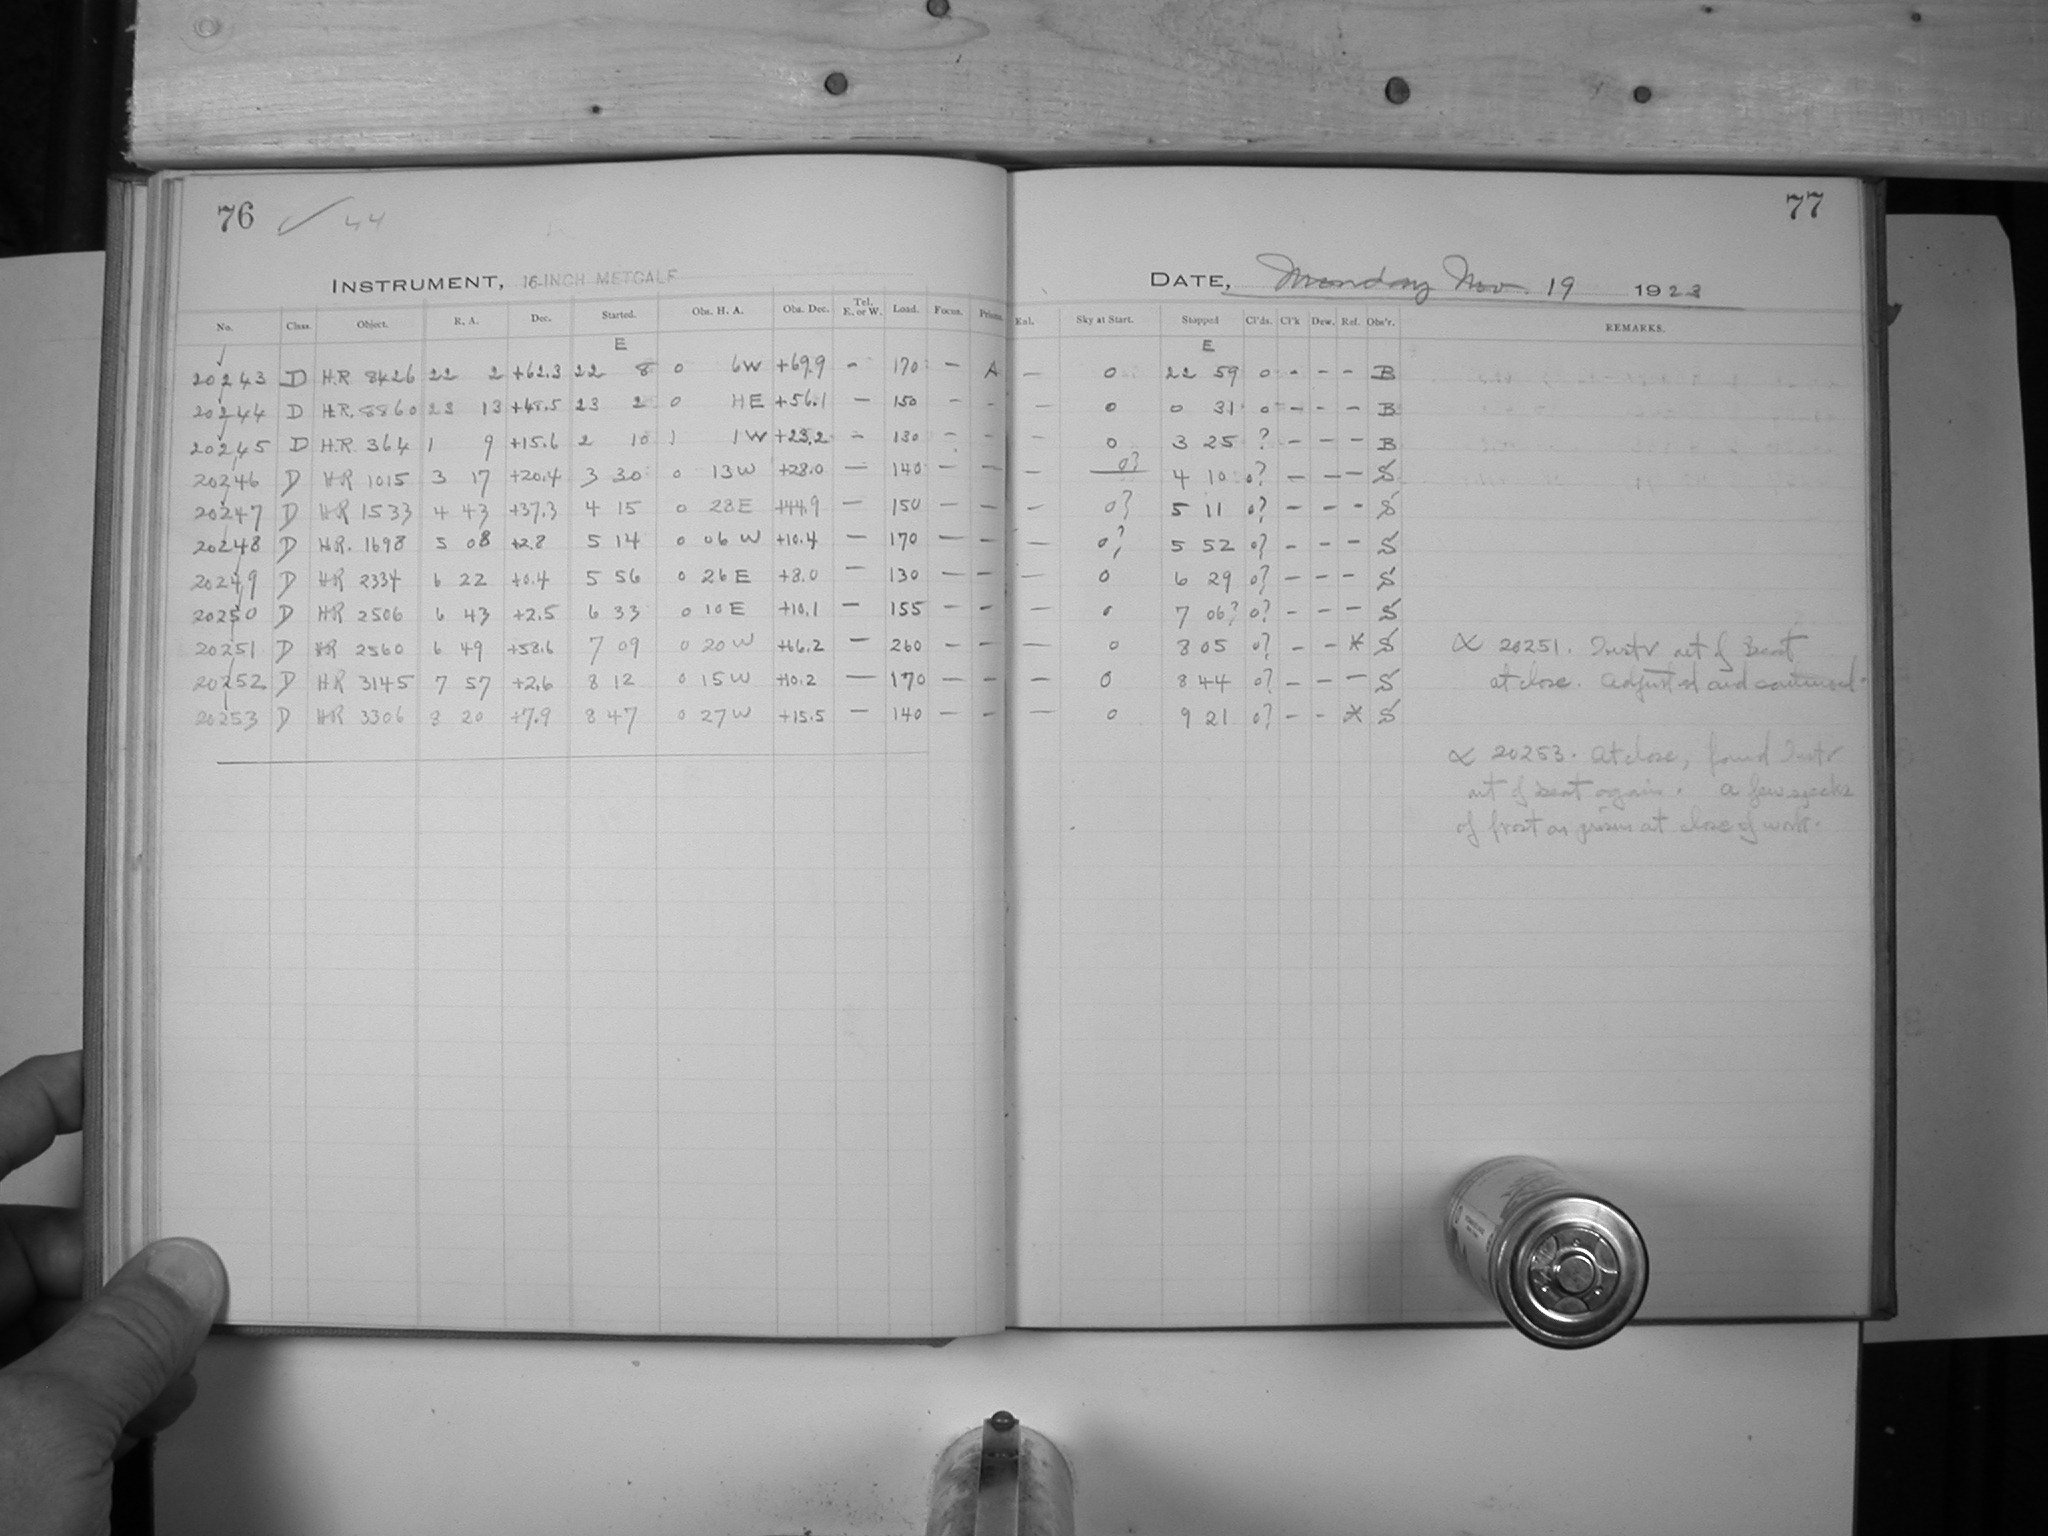 76 44
77
INSTRUMENT, 16-INCH METCALF
DATE, Monday Nov. 19 1923
No. Class. Object. R. A. Dec. Started. Obs. H. A. Obs. Dec. Tel. E. or W. Load. Focus. Prisms. Enl. Sky at Start. Stopped Cl'ds. Cl'k Dew. Ref. Obs'r. REMARKS.
E E
20243 D H.R 8426 22 2 +62.3 22 8 0 6W +69.9 - 170 - A - 0 22 59 0 - - - B
20244 D H.R. 8860 23 13 +48.5 23 2 0 11E +56.1 - 150 - - - 0 0 31 0 - - - B
20245 D H.R. 364 1 9 +15.6 2 10 1 1W +23.2 - 130 - - - 0 3 25 ? - - - B
20246 D HR 1015 3 17 +20.4 3 30 0 13W +28.0 - 140 - - - 0? 4 10 0? - - - S
20247 D HR 1533 4 43 +37.3 4 15 0 28E +44.9 - 150 - - - 0? 5 11 0? - - - S
20248 D HR. 1698 5 08 +2.8 5 14 0 06 W +10.4 - 170 - - - 0? 5 52 0? - - - S
20249 D HR 2334 6 22 +0.4 5 56 0 26 E +8.0 - 130 - - - 0 6 29 0? - - - S
20250 D HR 2506 6 43 +2.5 6 33 0 10 E +10.1 - 155 - - - 0 7 06? 0? - - - S
20251 D HR 2560 6 49 +58.6 7 09 0 20 W +66.2 - 260 - - - 0 8 05 0? - - * S
20252 D HR 3145 7 57 +2.6 8 12 0 15 W +10.2 - 170 - - - 0 8 44 0? - - - S
20253 D HR 3306 8 20 +7.9 8 47 0 27 W +15.5 - 140 - - - 0 9 21 0? - - * S
∝ 20251. Instr out of Beat
at close. Adjusted and continued.
∝ 20253. At close, found Instr
out of beat again. A few specks
of frost on prism at close of work.